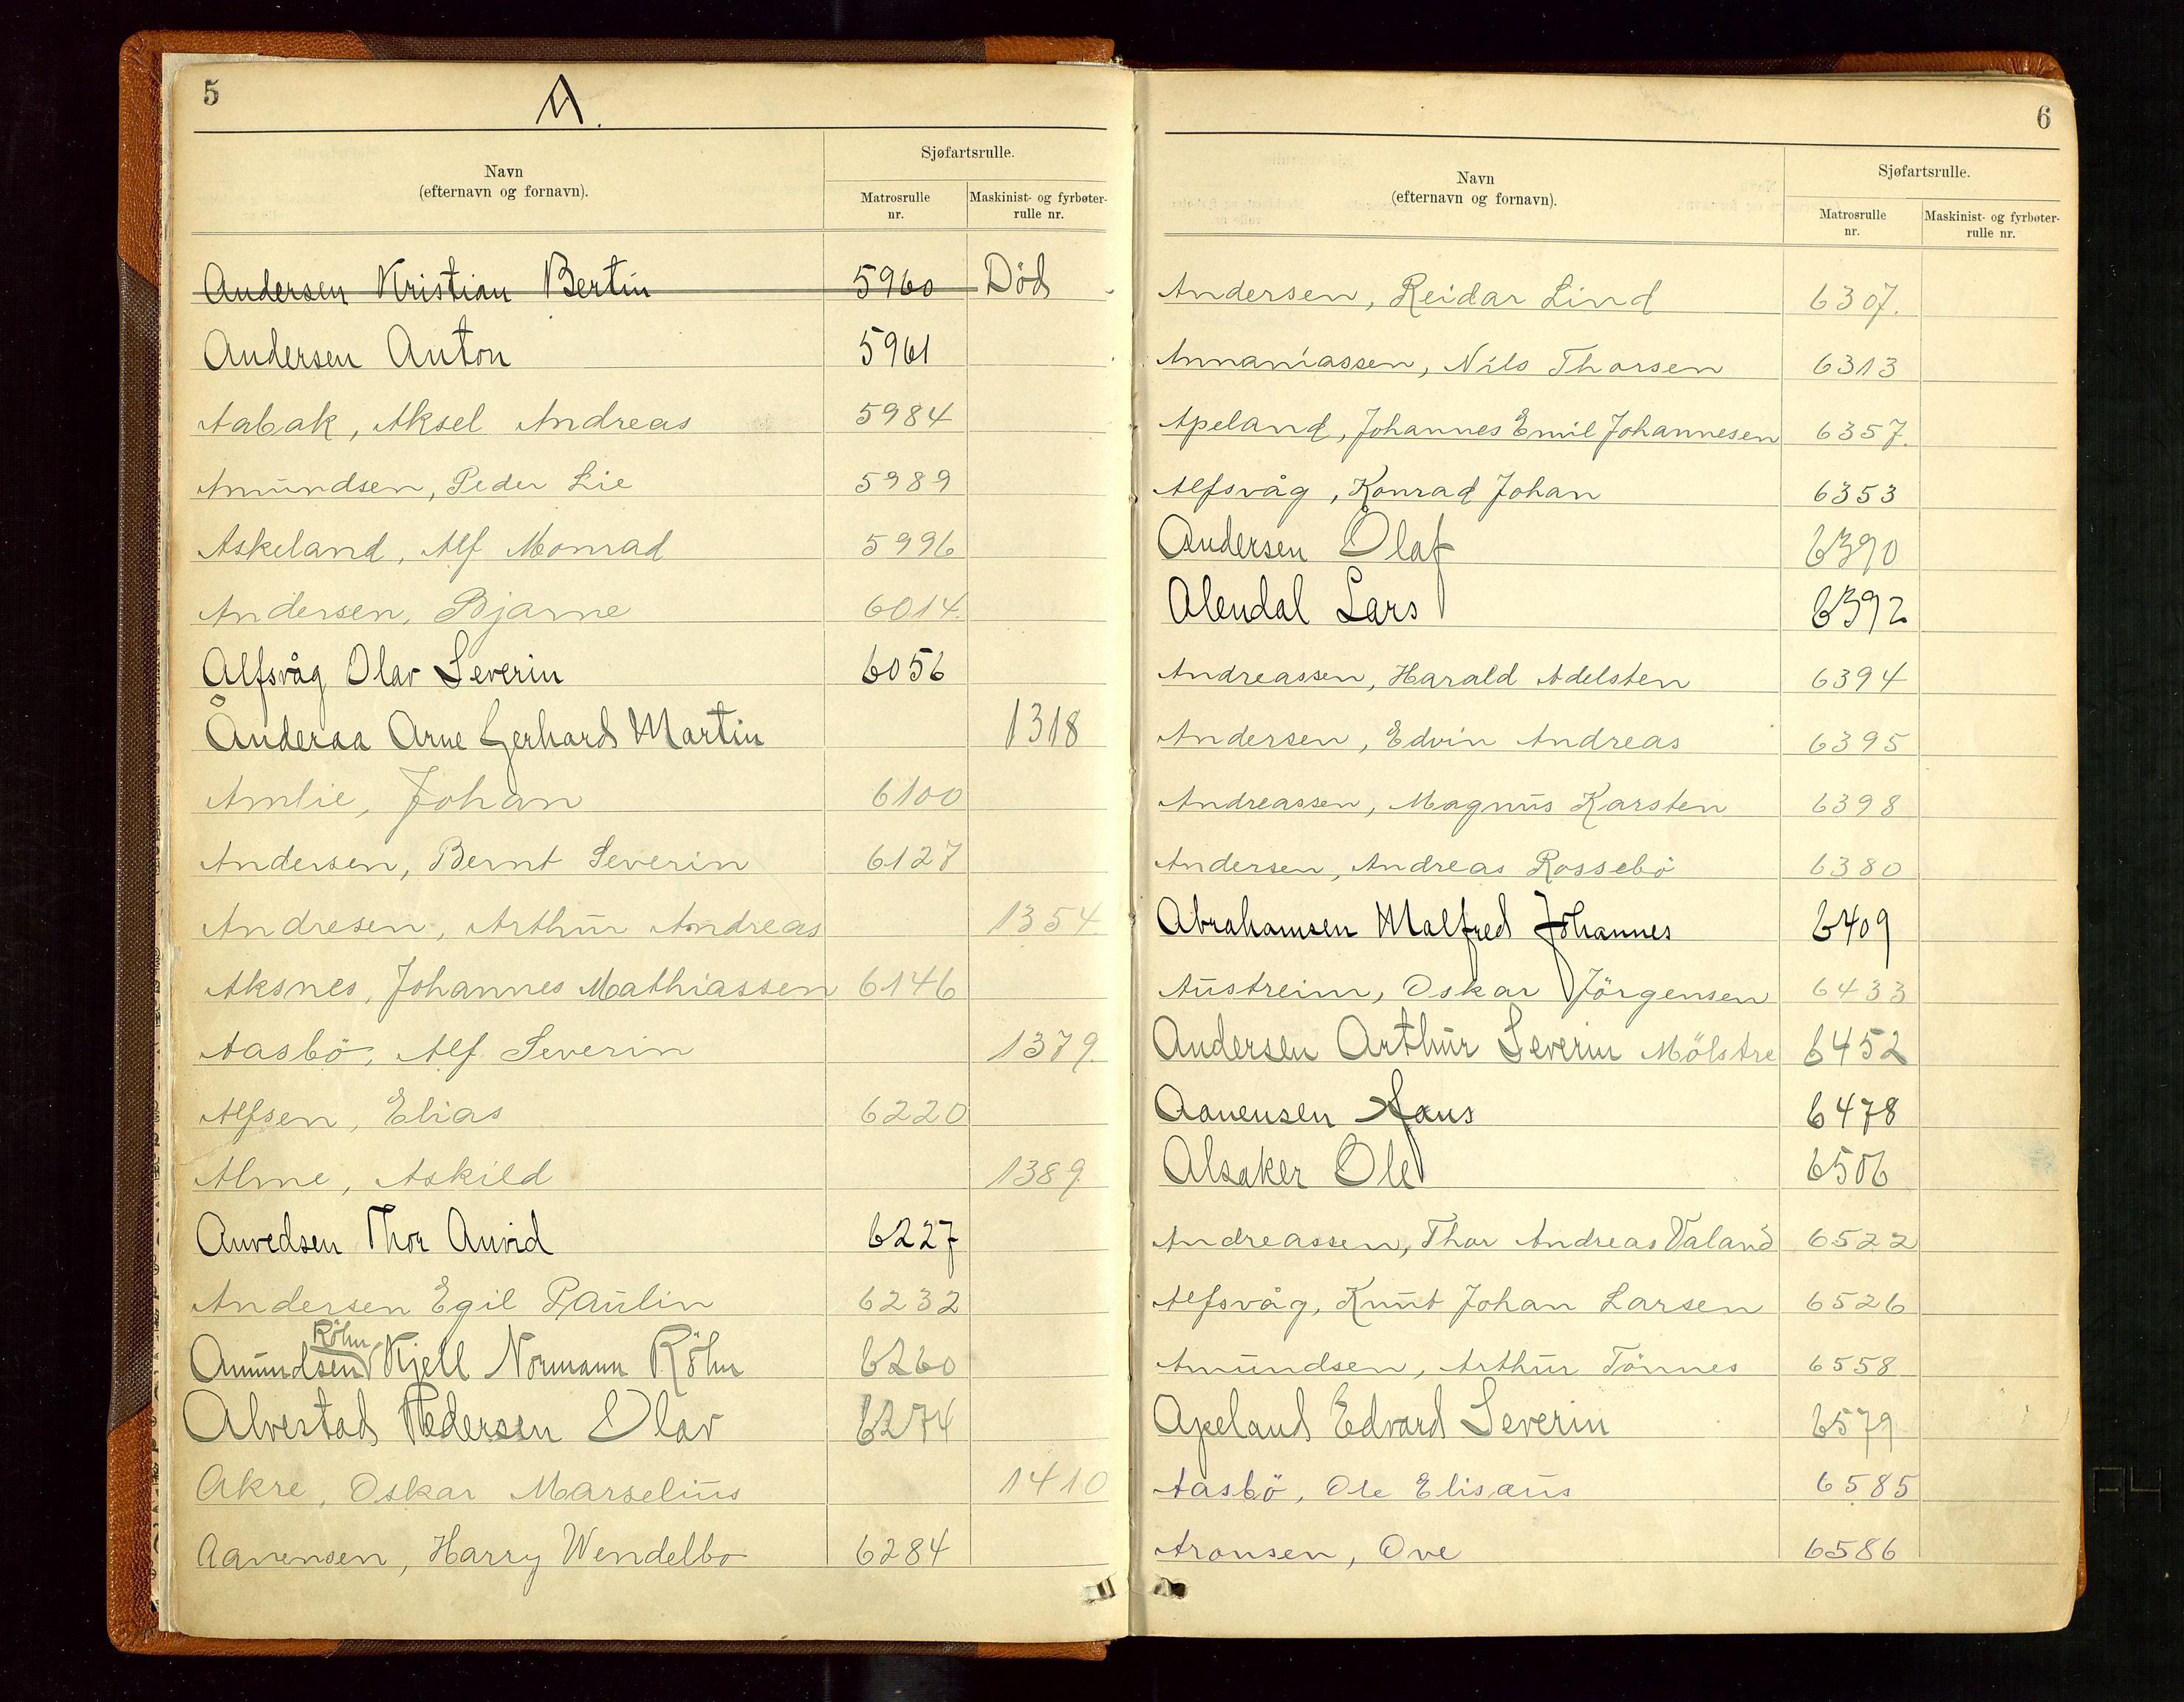 5
A.
Sjøfartsrulle.
Navn
(efternavn og fornavn).
Matrosrulle nr.
Maskinist- og fyrbøter-rulle nr.
Andersen Kristian Bertin 5960 Död
Andersen Anton 5961
Aabak, Aksel Andreas 5984
Amundsen, Peder Lie 5989
Askeland, Alf Monrad 5996
Andersen, Bjarne 6014.
Alfsvåg Olav Severin 6056
Ånderaa Arne Gerhard Martin 1318
Amlie, Johan 6100
Andersen, Bernt Severin 6127
Andresen, Arthur Andreas 1354
Aksnes, Johannes Mathiassen 6146
Aasbö, Alf Severin 1379.
Alfsen, Elias 6220
Alme, Askild 1389
Anvedsen Thor Anvid 6227
Andersen Egil Paulin 6232
Röhn
Amundsen Kjell Normann Röhn 6260
Alvestad Pedersen Olav 6274
Akre, Oskar Marselius 1410
Aanensen, Harry Wendelbo 6284
6
Sjøfartsrulle.
Navn
(efternavn og fornavn).
Matrosrulle nr.
Maskinist- og fyrbøter-rulle nr.
Andersen, Reidar Lind 6307.
Annaniassen, Nils Thorsen 6313
Apeland, Johannes Emil Johannesen 6357.
Alfsvåg, Konrad Johan 6353
Andersen Olaf 6390
Alendal Lars 6392
Andreassen, Harald Adelsten 6394
Andersen, Edvin Andreas 6395
Andreassen, Magnus Karsten 6398
Andersen, Andreas Rossebö 6380
Abrahamsen Malfred Johannes 6409
Austreim, Oskar Jörgensen 6433
Andersen Arthur Severin Mölstre 6452
Aanensen Hans 6478
Alsaker Ole 6506
Andreassen, Thor Andreas Valand 6522
Alfsvåg, Knut Johan Larsen 6526
Amundsen, Arthur Tönnes 6558
Apeland Edvard Severin 6579
Aasbö, Ole Elisæus 6585
Aronsen, Ove 6586